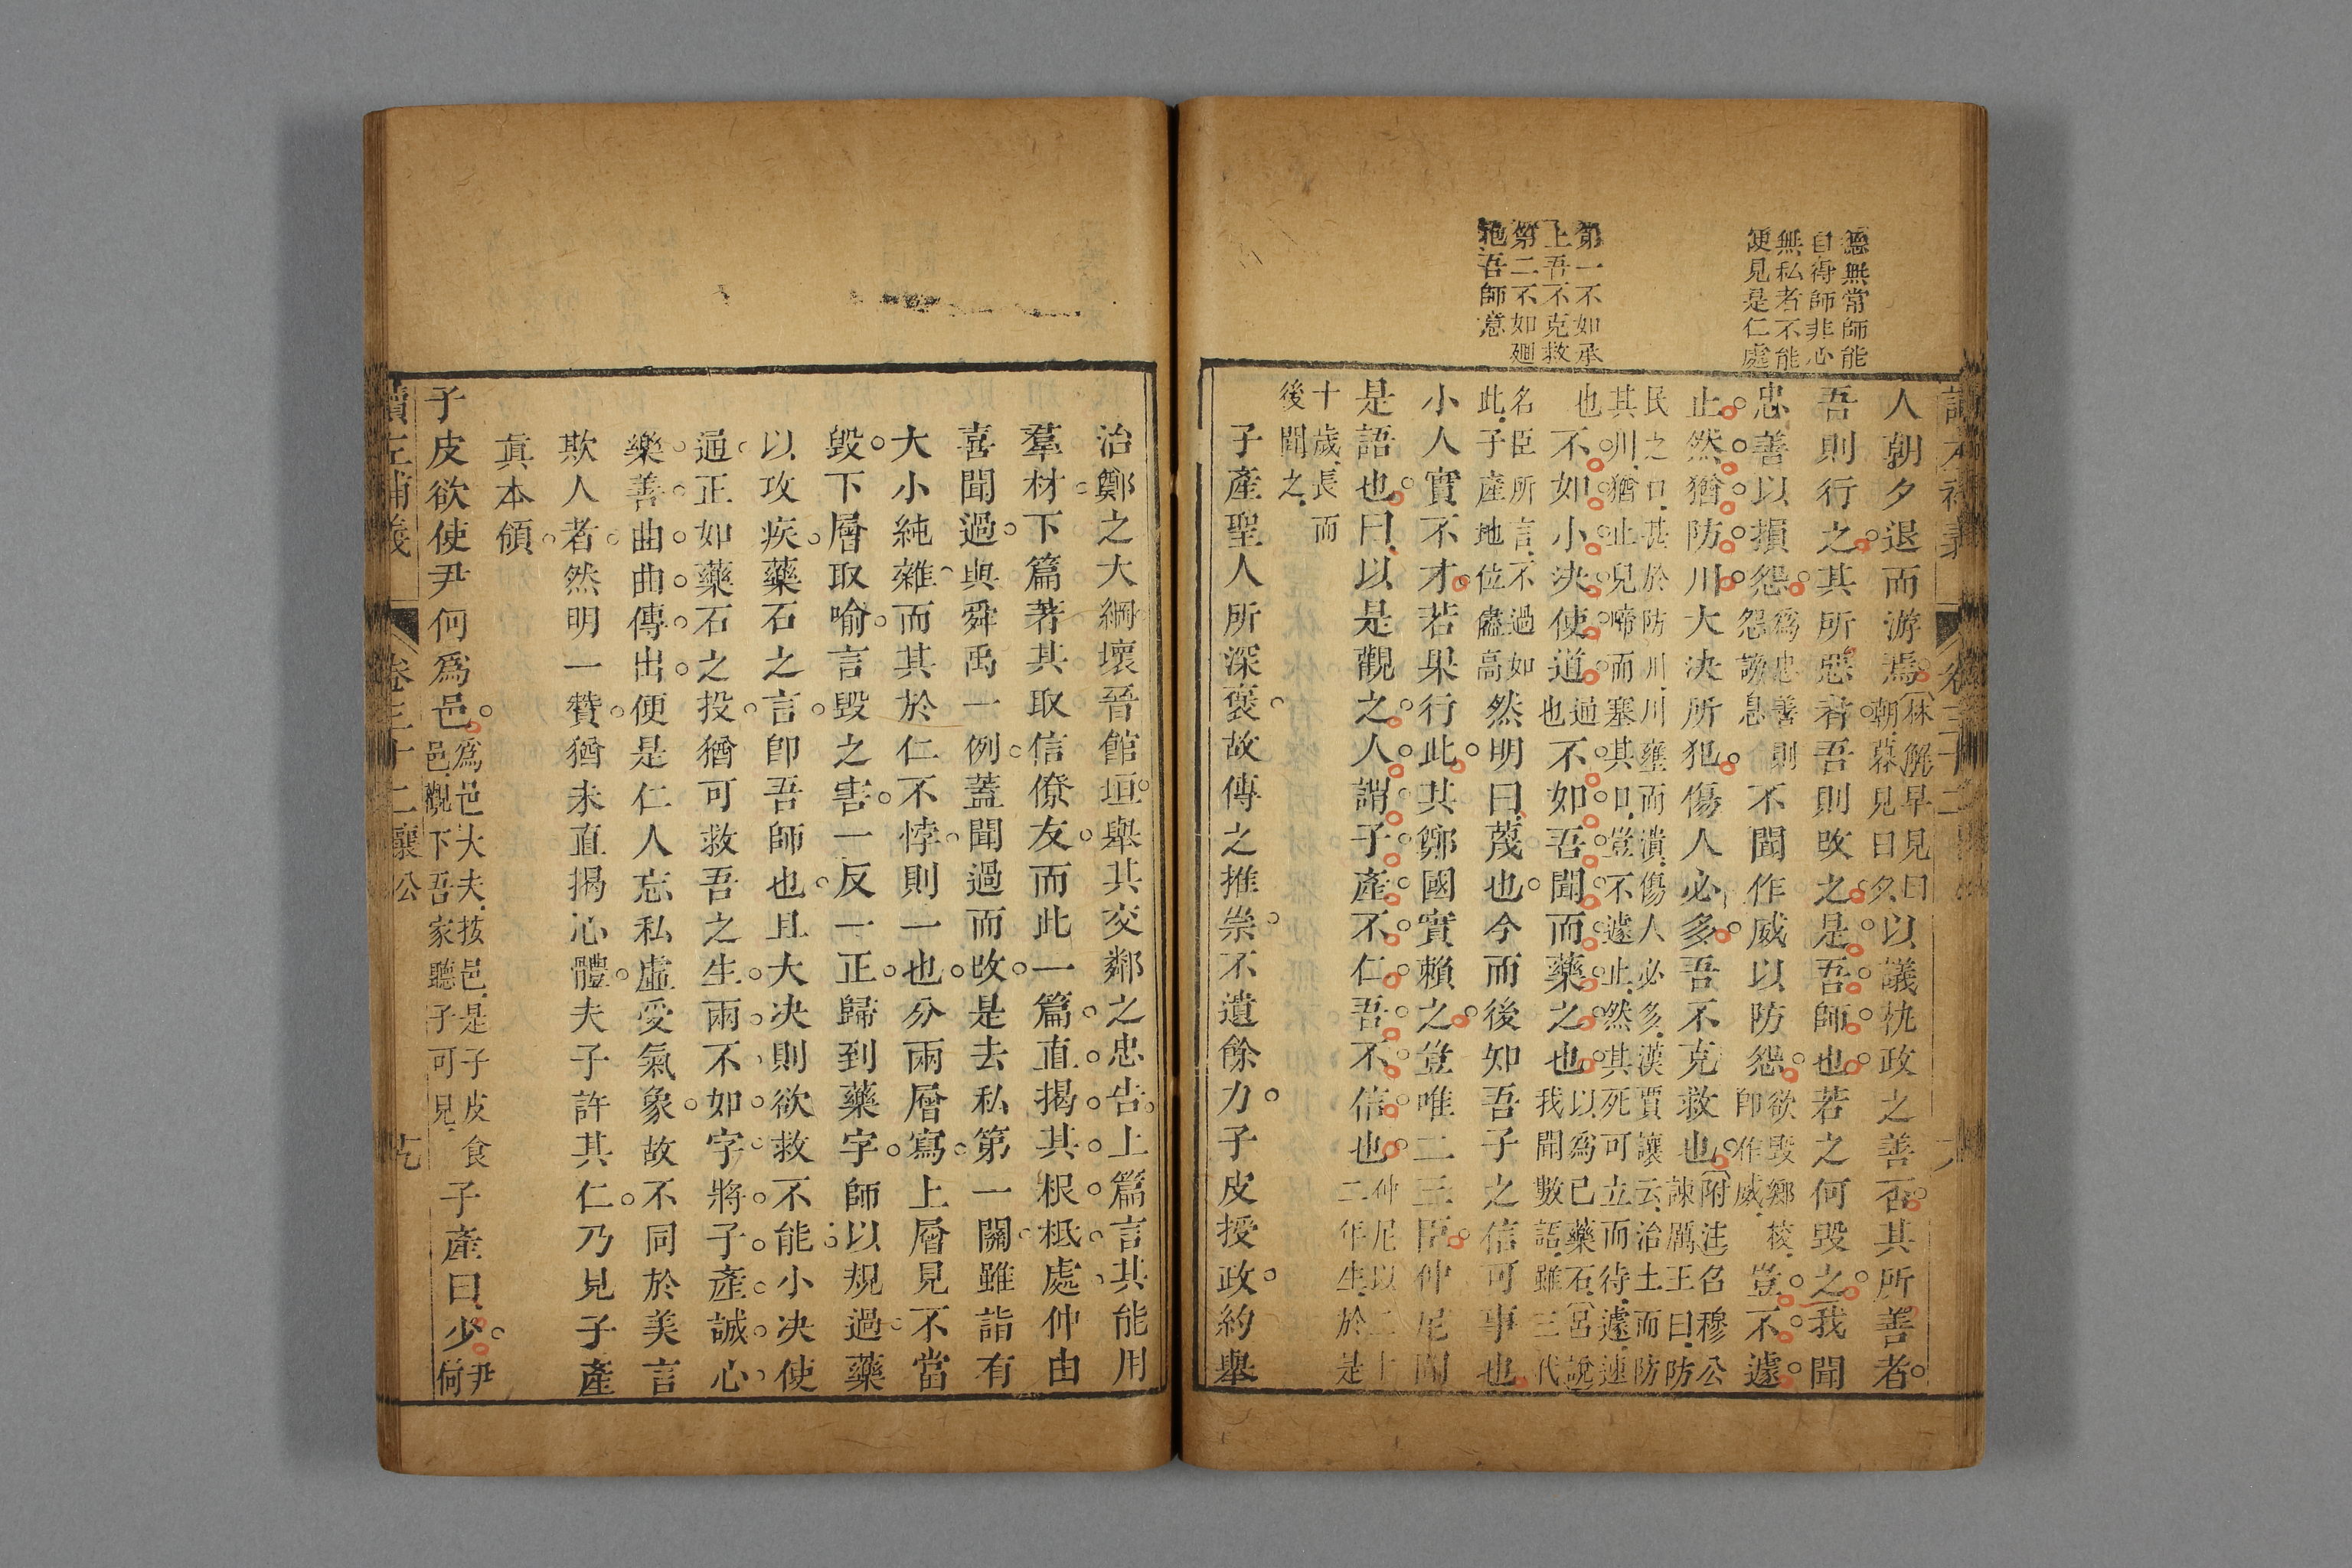 德無常師能
自得師非心
無私者不能
便見是仁處
第一不如承
上吾不克救
第二不如廻
地吾師意
人朝夕退而游焉林解早見曰朝暮見曰夕以議執政之善否其所善者
吾則行之其所惡者吾則改之是吾師也若之何毀之我聞
忠善以損怨爲忠善則怨謗息不聞作威以防怨欲毀鄉校卽作威豈不遽
止然猶防川大決所犯傷人必多吾不克救也附注召穆公諫厲王曰防
民之口甚於防川川壅而潰傷人必多漢賈讓云治土而防
其川猶止兒啼而塞其口豈不遽止然其死可立而待遽速
也不如小決使道通也不如吾聞而藥之也以爲己藥石呂說我聞數語雖三代
名臣所言不過如此子產地位儘高然明曰蔑也今而後知吾子之信可事也
小人實不才若果行此其鄭國實賴之豈唯二三臣仲尼聞
是語也曰以是觀之人謂子產不仁吾不信也仲尼以二十二年生於是
十歲長而
後聞之
子產聖人所深褒故傳之推崇不遺餘力子皮授政約舉
治鄭之大綱壞晉館垣舉其交鄰之忠告上篇言其能用
羣材下篇著其取信僚友而此一篇直揭其根柢處仲由
喜聞過與舜禹一例蓋聞過而改是去私第一關雖詣有
大小純雜而其於仁不悖則一也分兩層寫上層見不當
毀下層取喻言毀之害一反一正歸到藥字師以規過藥
以攻疾藥石之言卽吾師也且大決則欲救不能小決使
通正如藥石之投猶可救吾之生兩不如字將子產誠心
樂善曲曲傳出便是仁人忘私虛受氣象故不同於美言
欺人者然明一贊猶未直揭心體夫子許其仁乃見子產
眞本領
子皮欲使尹何爲邑爲邑大夫按邑是子皮食邑觀下吾家聽子可見子產曰少尹何
讀左補義 卷三十二襄公